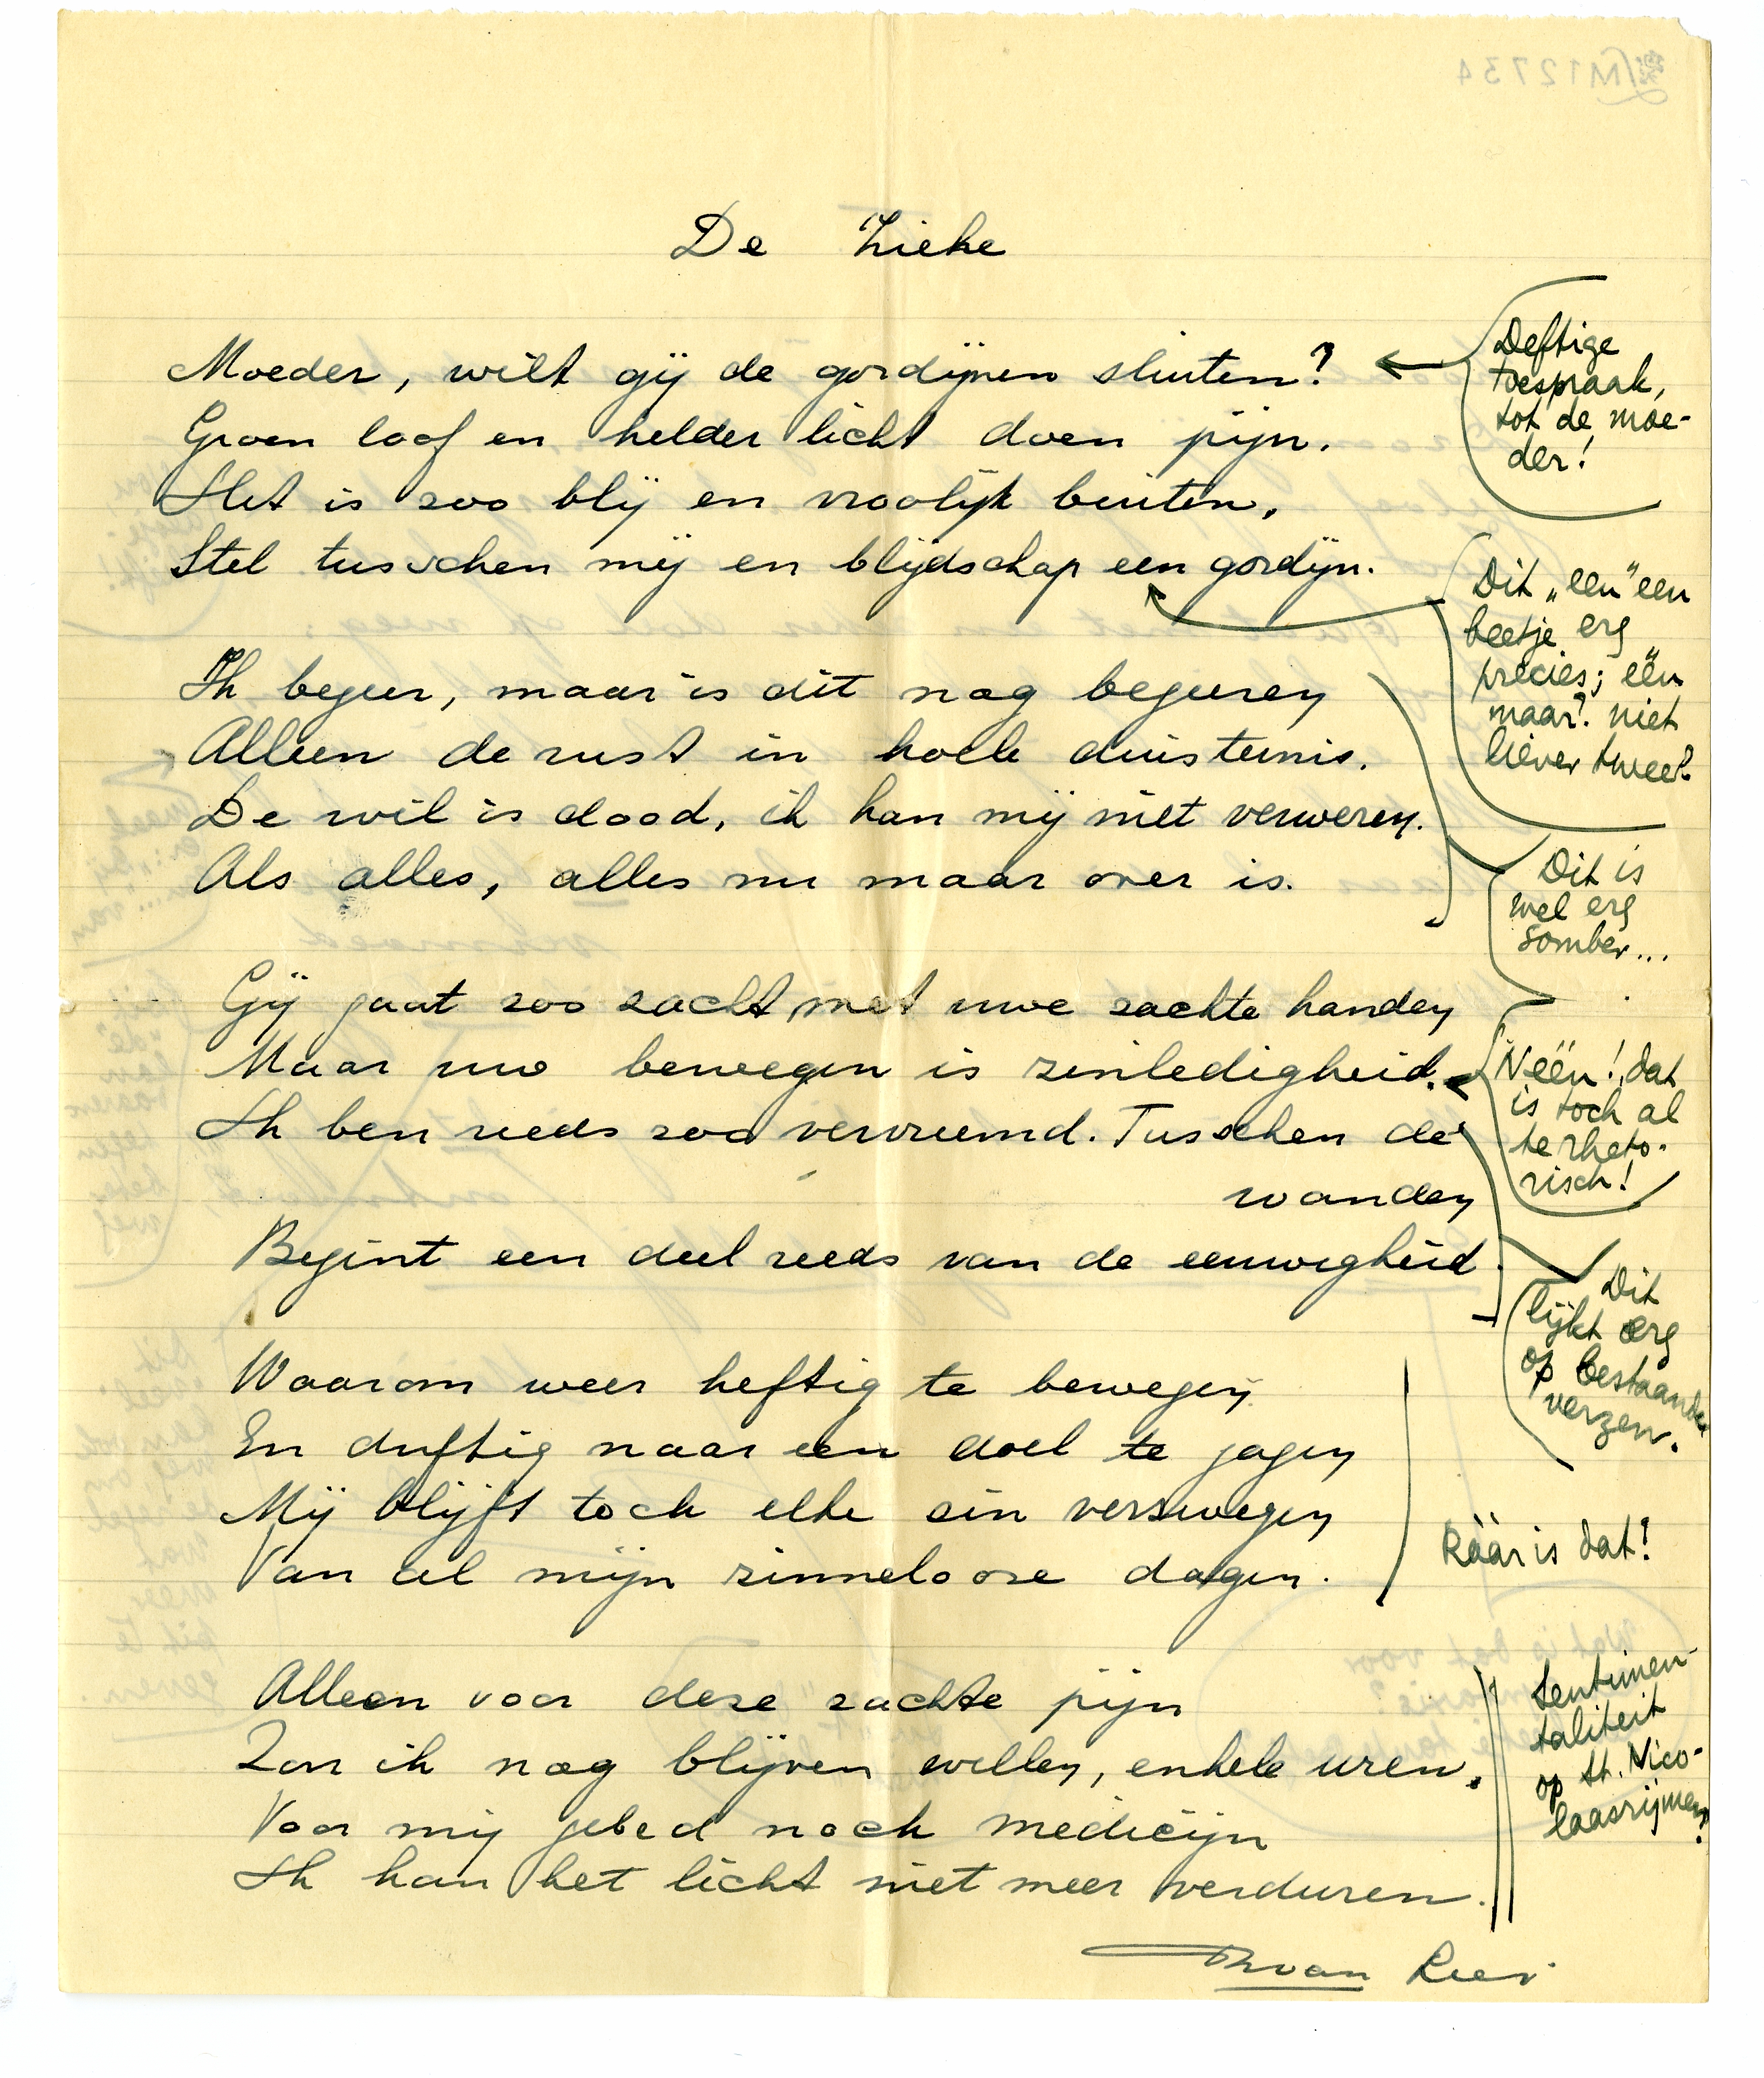 De Zieke
Moeder, wilt gij de gordijnen sluiten?
Groen loof en helder licht doen pijn.
Het is zoo blij en vroolijk buiten,
Stel tusschen mij en blijdschap een gordijn.
Ik begeer, maar is dit nog begeeren
Alleen de rust in koele duisternis.
De wil is dood, ik kan mij niet verweren.
Als alles, alles nu maar over is.
Gij gaat zoo zacht met uwe zachte handen
Maar uw bewegen is zinledigheid.
Ik ben reeds zoo vervreemd. Tusschen de
wanden
Begint een deel reeds van de eeuwigheid
Waarom weer heftig te bewegen
En driftig naar een doel te jagen
Mij blijft toch elke zin verzwegen
Van al mijn zinnelooze dagen.
Alleen voor deze zachte pijn
Zou ik nog blijven willen, enkele uren.
Voor mij gebed noch medicijn
Ik kan het licht niet meer verduren.
van
Deftige
toespraak,
tot de moe-
der!
Dit „een" een
beetje erg
precies; één
maar? niet
liever twee?
Dit is
wel erg
somber...
Néén! dat
is toch al
te rheto-
risch!
Dit
lijkt erg
op bestaande
verzen.
Ráár is dat!
Sentimen-
taliteit
op St. Nico-
laasrijmen?
M12734